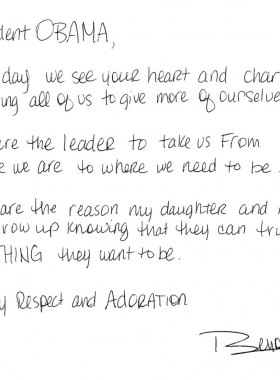 dent OBAMA,
day we see your heart and char
ing all of us to give more of ourselve
ere the leader to take us From
e we are to where we need to be
are the reason my daughter and n
row up knowing that they can tru
THING they want to be.
y Respect and ADORATION
Beyo